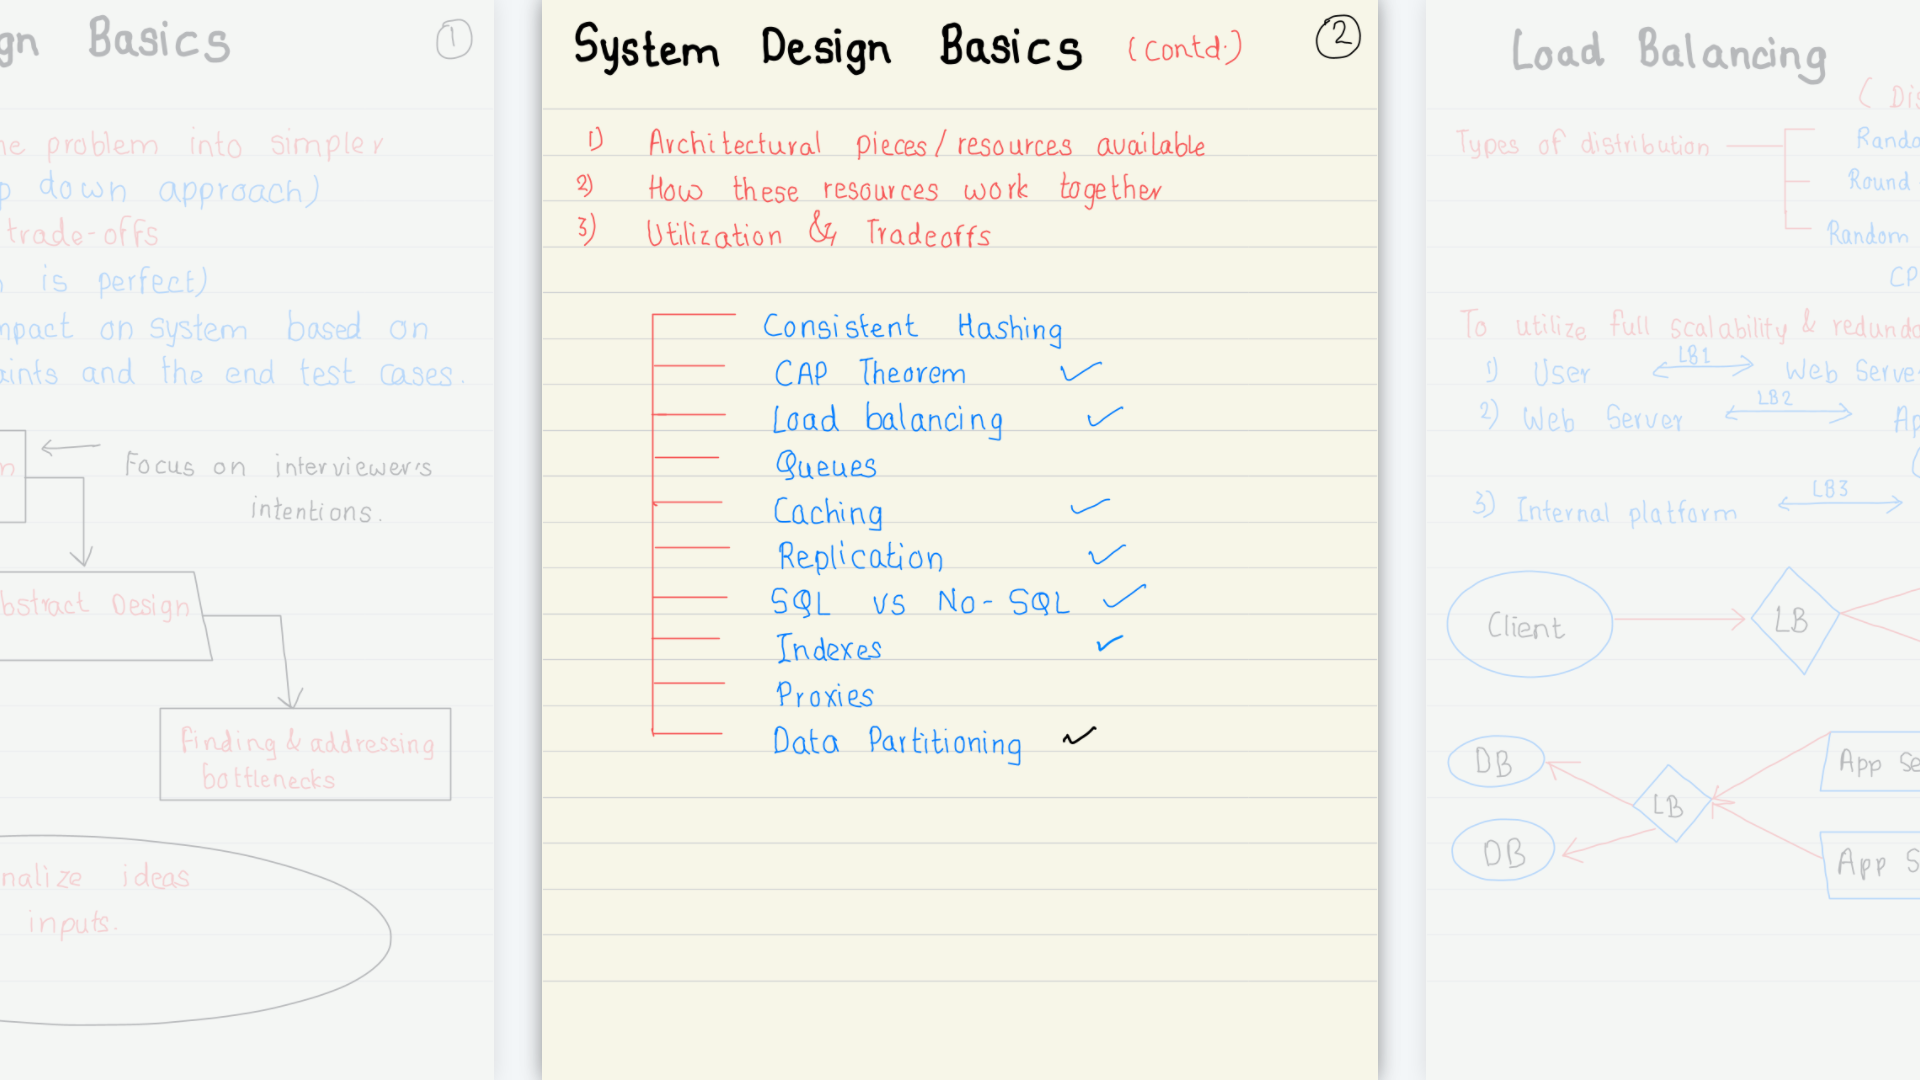 gn Basics 1
he problem into simpler
p down approach)
trade-offs
is perfect)
mpact on system based on
aints and the end test cases.
Focus on interviewer's
intentions.
bstract Design
Finding & addressing
bottlenecks
nalize ideas
inputs.
System Design Basics (Contd.) 2
1) Architectural pieces/resources available
2) How these resources work together
3) Utilization & Tradeoffs
Consistent Hashing
CAP Theorem ✓
Load balancing ✓
Queues
Caching ✓
Replication ✓
SQL vs No-SQL ✓
Indexes ✓
Proxies
Data Partitioning ✓
Load Balancing
( Dis
Types of distribution
Rando
Round
Random
CP
To utilize full scalability & redunda
1) User LB1 Web Serve
2) Web Server LB2 Ap
3) Internal platform LB3
Client LB
DB App Se
LB
DB App S